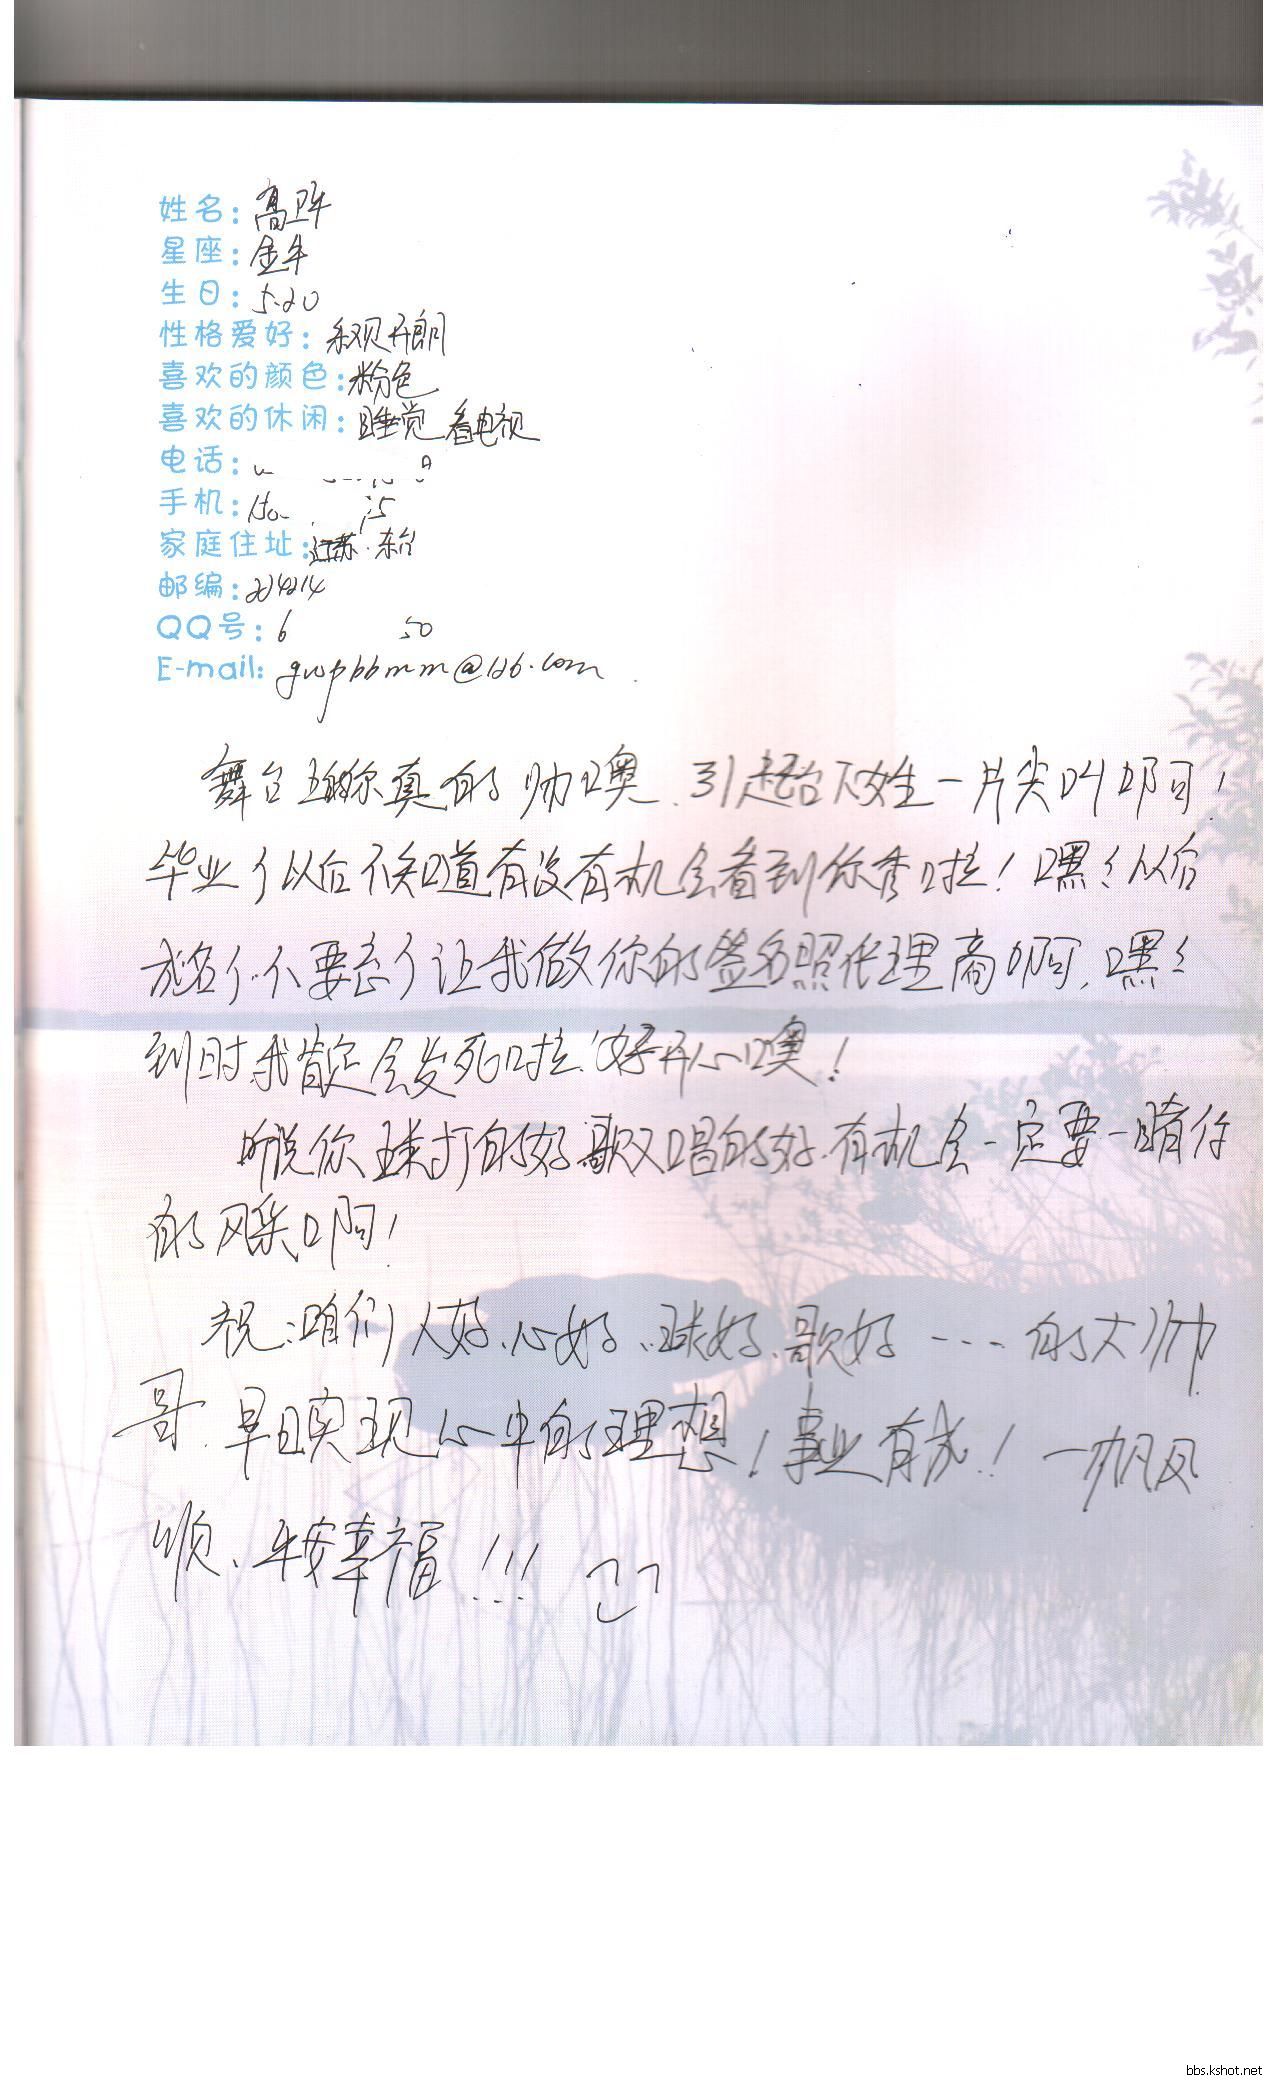 姓名：高卫平
星座：金牛
生日：5.20
性格爱好：乐观开朗
喜欢的颜色：粉色
喜欢的休闲：睡觉 看电视
电话：
手机：
家庭住址：江苏·东台
邮编：224214
QQ号：6 50
E-mail: gwpbbmm@126.com
舞台上的你真的帅噢、引起台下女生一片尖叫啊！
毕业了以后不知道有没有机会看到你秀啦！嘿嘿以后
成名了.不要忘了让我做你的签名照代理商啊，嘿嘿
到时我肯定会发死啦、好开心噢！
听说你球打的好歌又唱的好.有机会一定要一睹你
的风采啊！
祝：咱们人好、心好、球好、歌好---的大帅
哥、早日实现心中的理想！事业有成！一帆风
顺、平安幸福！！！
bbs.kshot.net